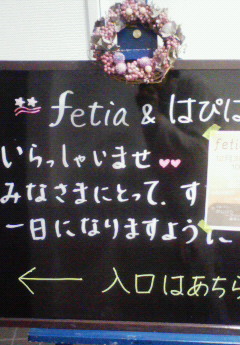 fetia & はぴは
いらっしゃいませ♥♥
みなさまにとって、す
一日になりますように
← 入口はあちら